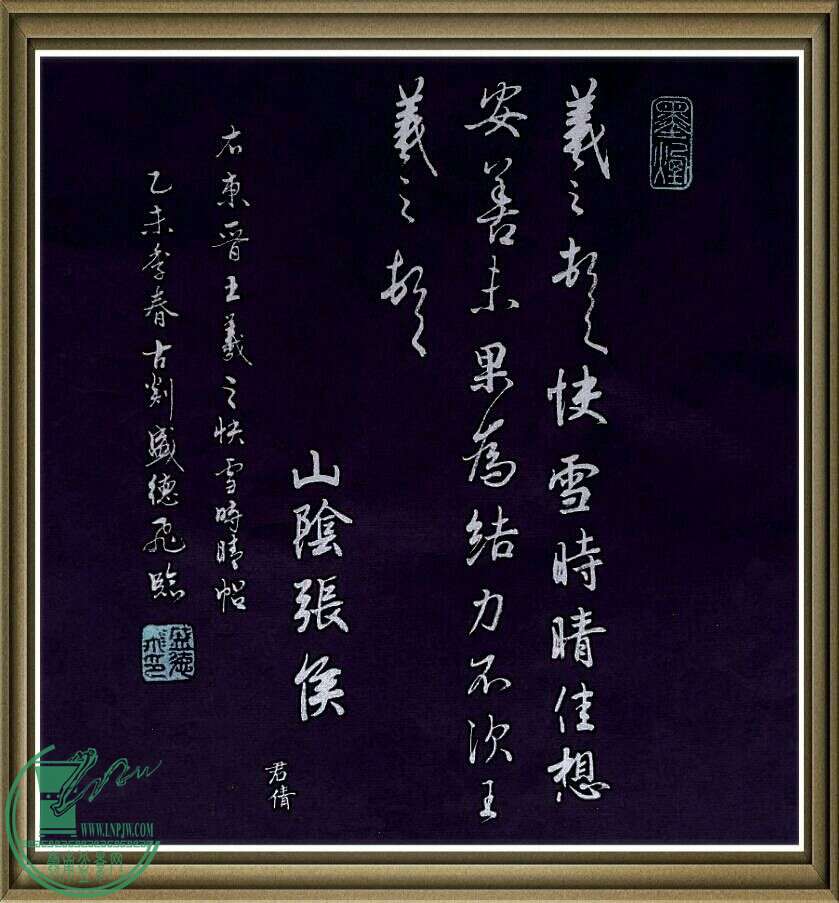 羲之頓首快雪時晴佳想
安善未果為結力不次王
羲之頓首
山陰張侯
君倩
右東晉王羲之快雪時晴帖
乙未季春古剡盛德飛臨
盛德飛印
WWW.LNPJW.COM